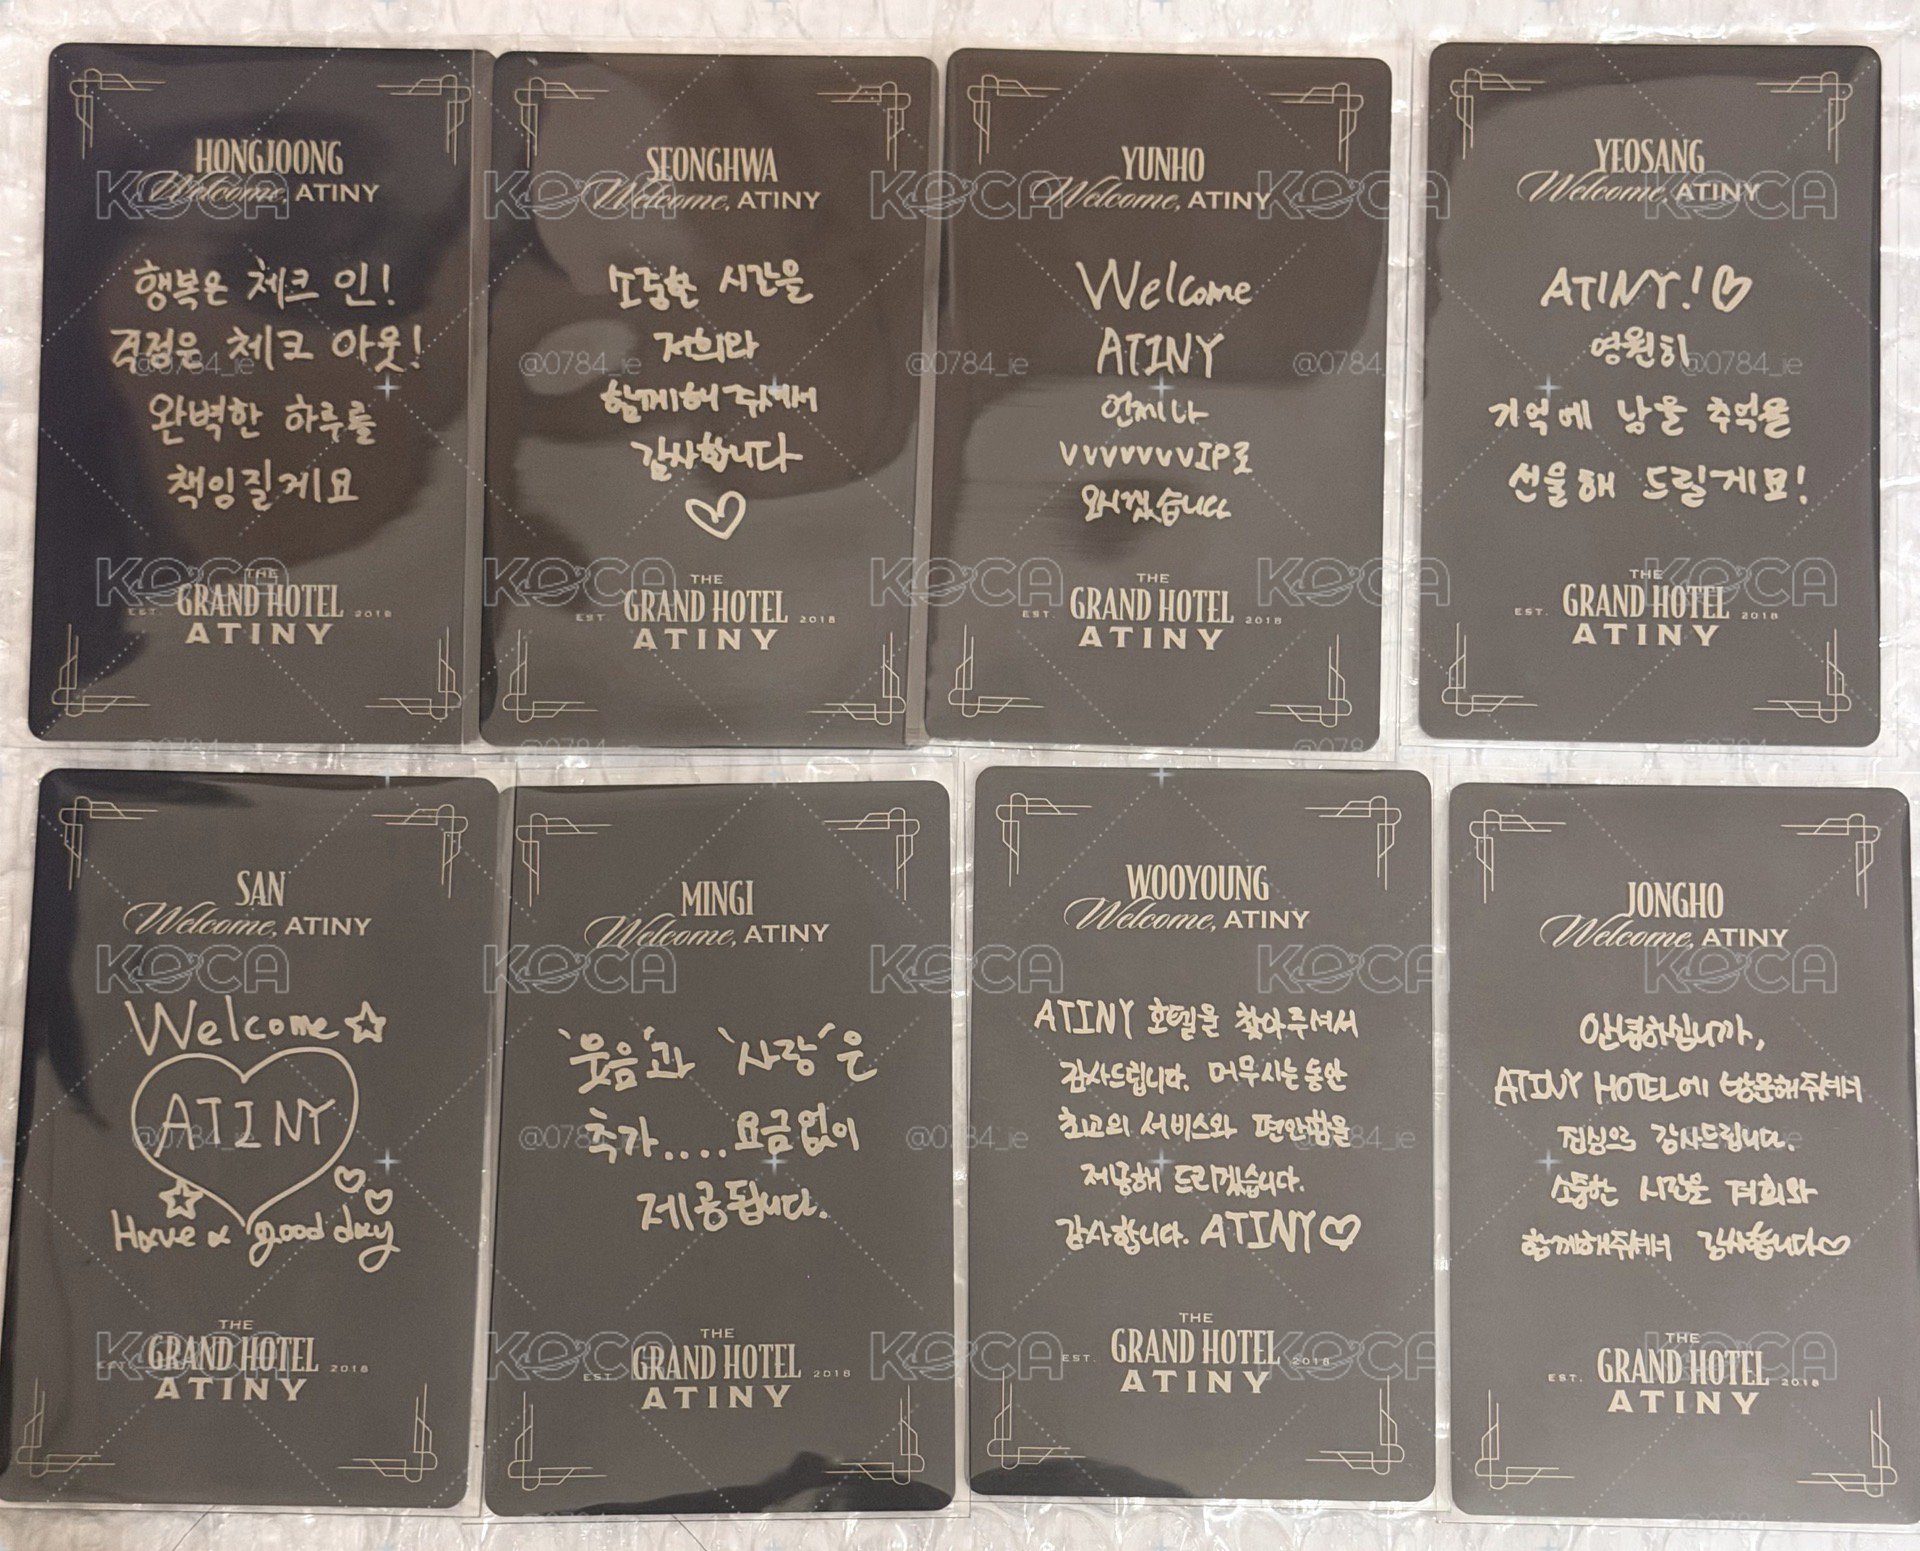 HONGJOONG
Welcome, ATINY
행복은 체크 인!
걱정은 체크 아웃!
완벽한 하루를
책임질게요
THE
EST. GRAND HOTEL 2018
ATINY
SEONGHWA
Welcome, ATINY
소중한 시간을
저희와
함께해 주셔서
감사합니다
THE
EST. GRAND HOTEL 2018
ATINY
YUNHO
Welcome, ATINY
Welcome
ATINY
언제나
VVVVVVVIP로
모시겠습니다
THE
EST. GRAND HOTEL 2018
ATINY
YEOSANG
Welcome, ATINY
ATINY!
영원히
기억에 남을 추억을
선물해 드릴게요!
THE
EST. GRAND HOTEL 2018
ATINY
SAN
Welcome, ATINY
Welcome
ATINY
Have a good day
THE
EST. GRAND HOTEL 2018
ATINY
MINGI
Welcome, ATINY
'웃음'과 '사랑'은
추가....요금없이
제공됩니다.
THE
EST. GRAND HOTEL 2018
ATINY
WOOYOUNG
Welcome, ATINY
ATINY 호텔을 찾아주셔서
감사드립니다. 머무시는동안
최고의 서비스와 편안함을
제공해 드리겠습니다.
감사합니다. ATINY
THE
EST. GRAND HOTEL 2018
ATINY
JONGHO
Welcome, ATINY
안녕하십니까,
ATINY HOTEL에 방문해주셔서
진심으로 감사드립니다.
소중한 시간을 저희와
함께해주셔서 감사합니다
THE
EST. GRAND HOTEL 2018
ATINY
KOCA
@0784_ie